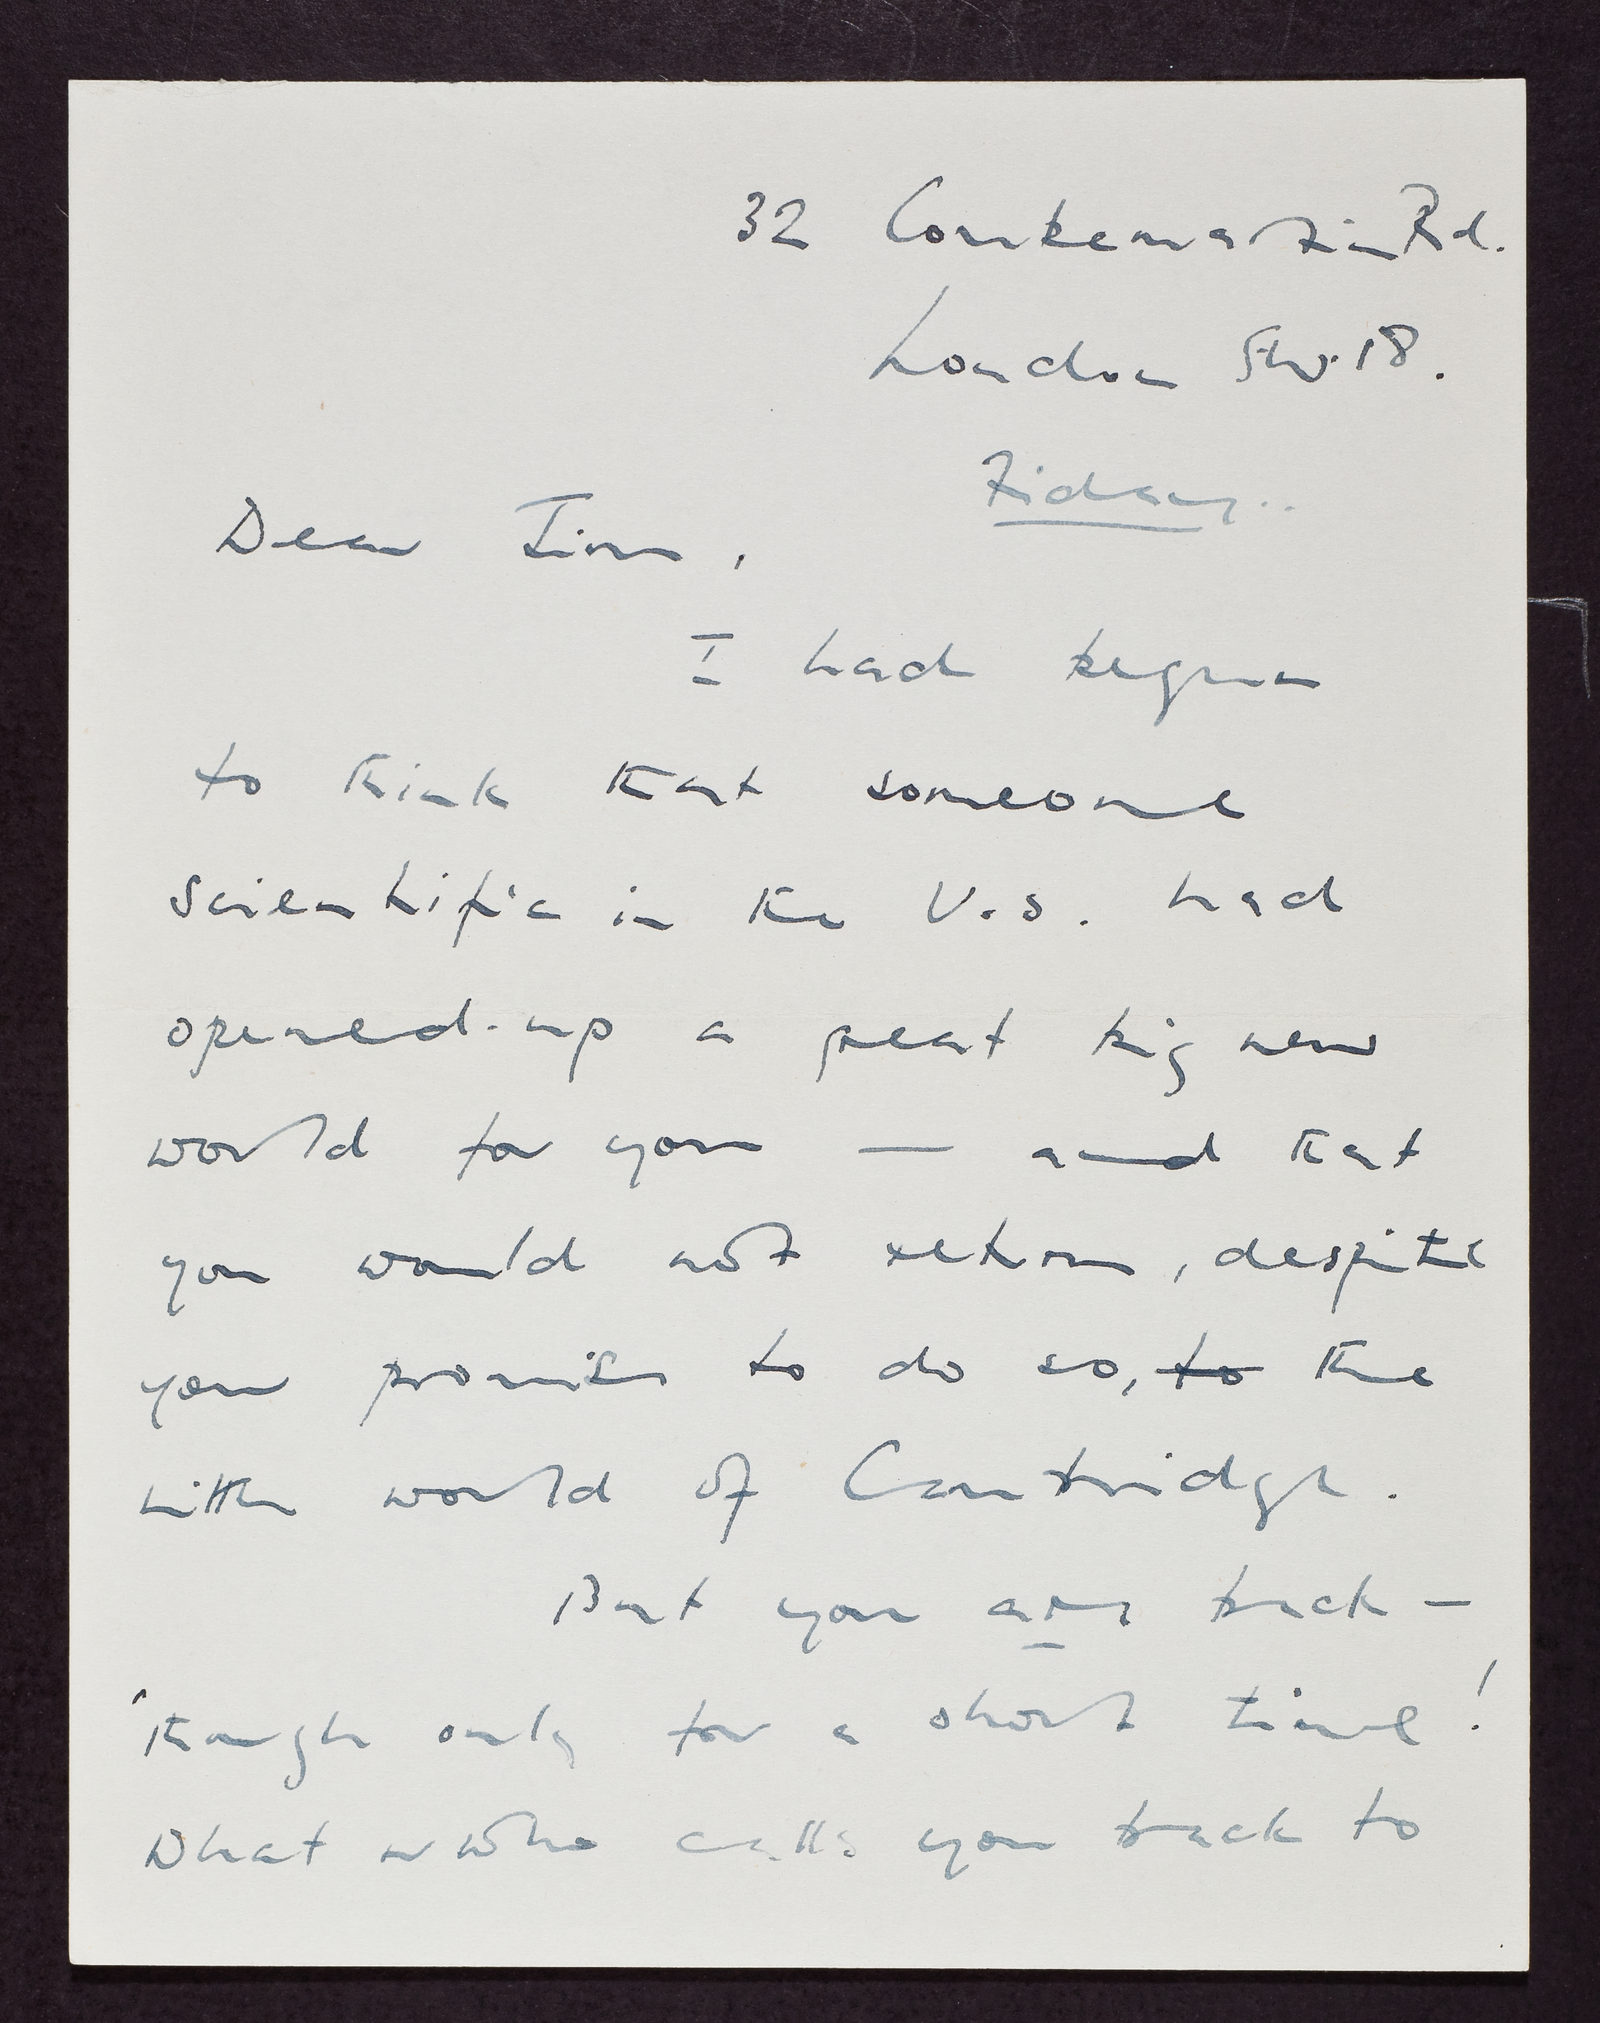 32 Rd.
London SW.18.
Friday..
Dear Jim,
I had begun
to think that someone
scientific in the U.S. had
opened-up a great big new
world for you — and that
you would not return, despite
your promise to do so, to the
little world of Cambridge.
But you are back —
'though only for a short time!
What or who calls you back to